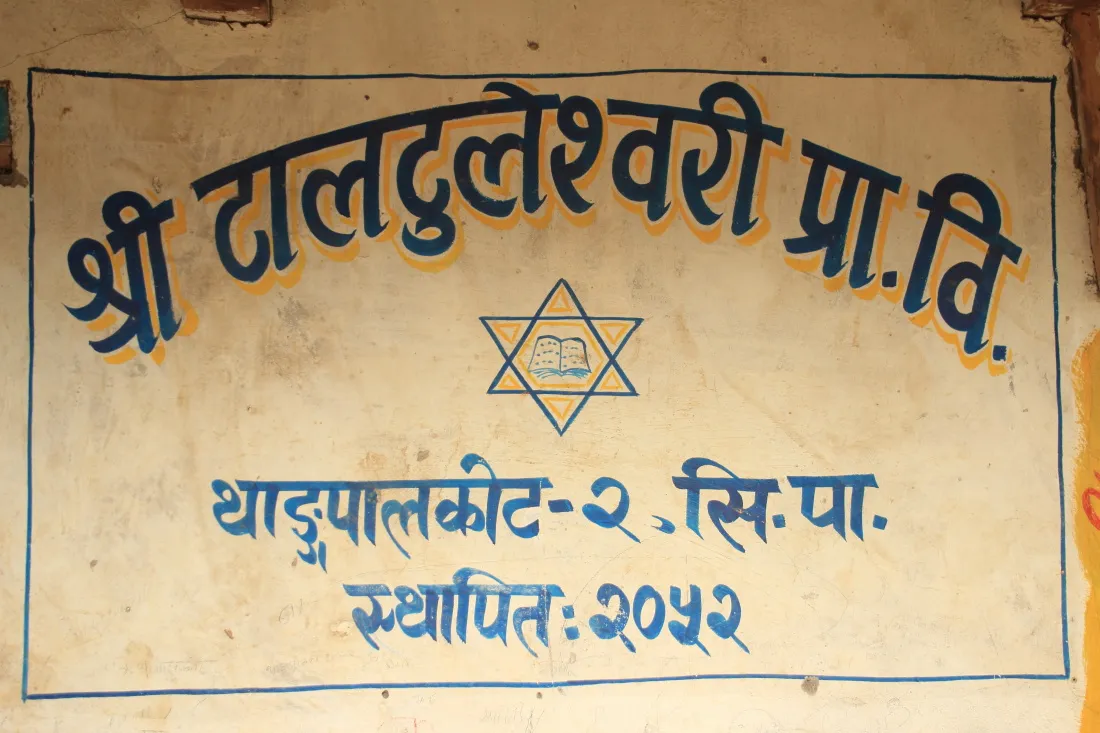 श्री टालटुलेश्वरी प्रा.वि.
थाङ्पालकोट-२, सि.पा.
स्थापित: २०५२